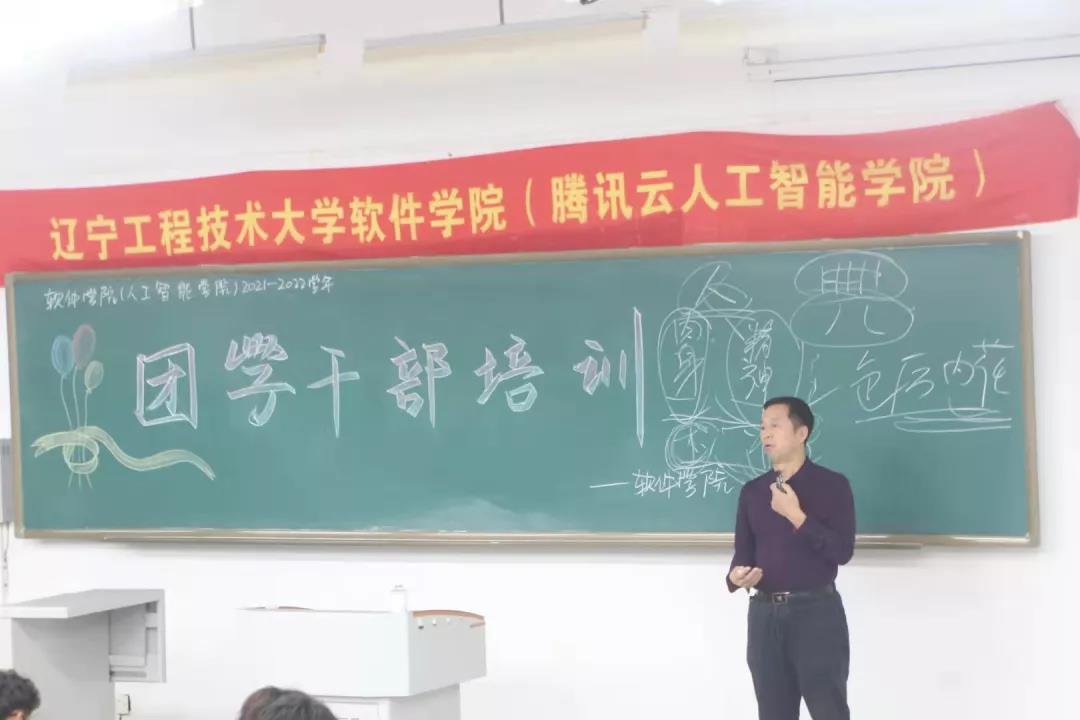 辽宁工程技术大学软件学院（腾讯云人工智能学院）
软件学院(人工智能学院)2021-2022学年
团学干部培训
人
典
肉身
精神
——软件学院